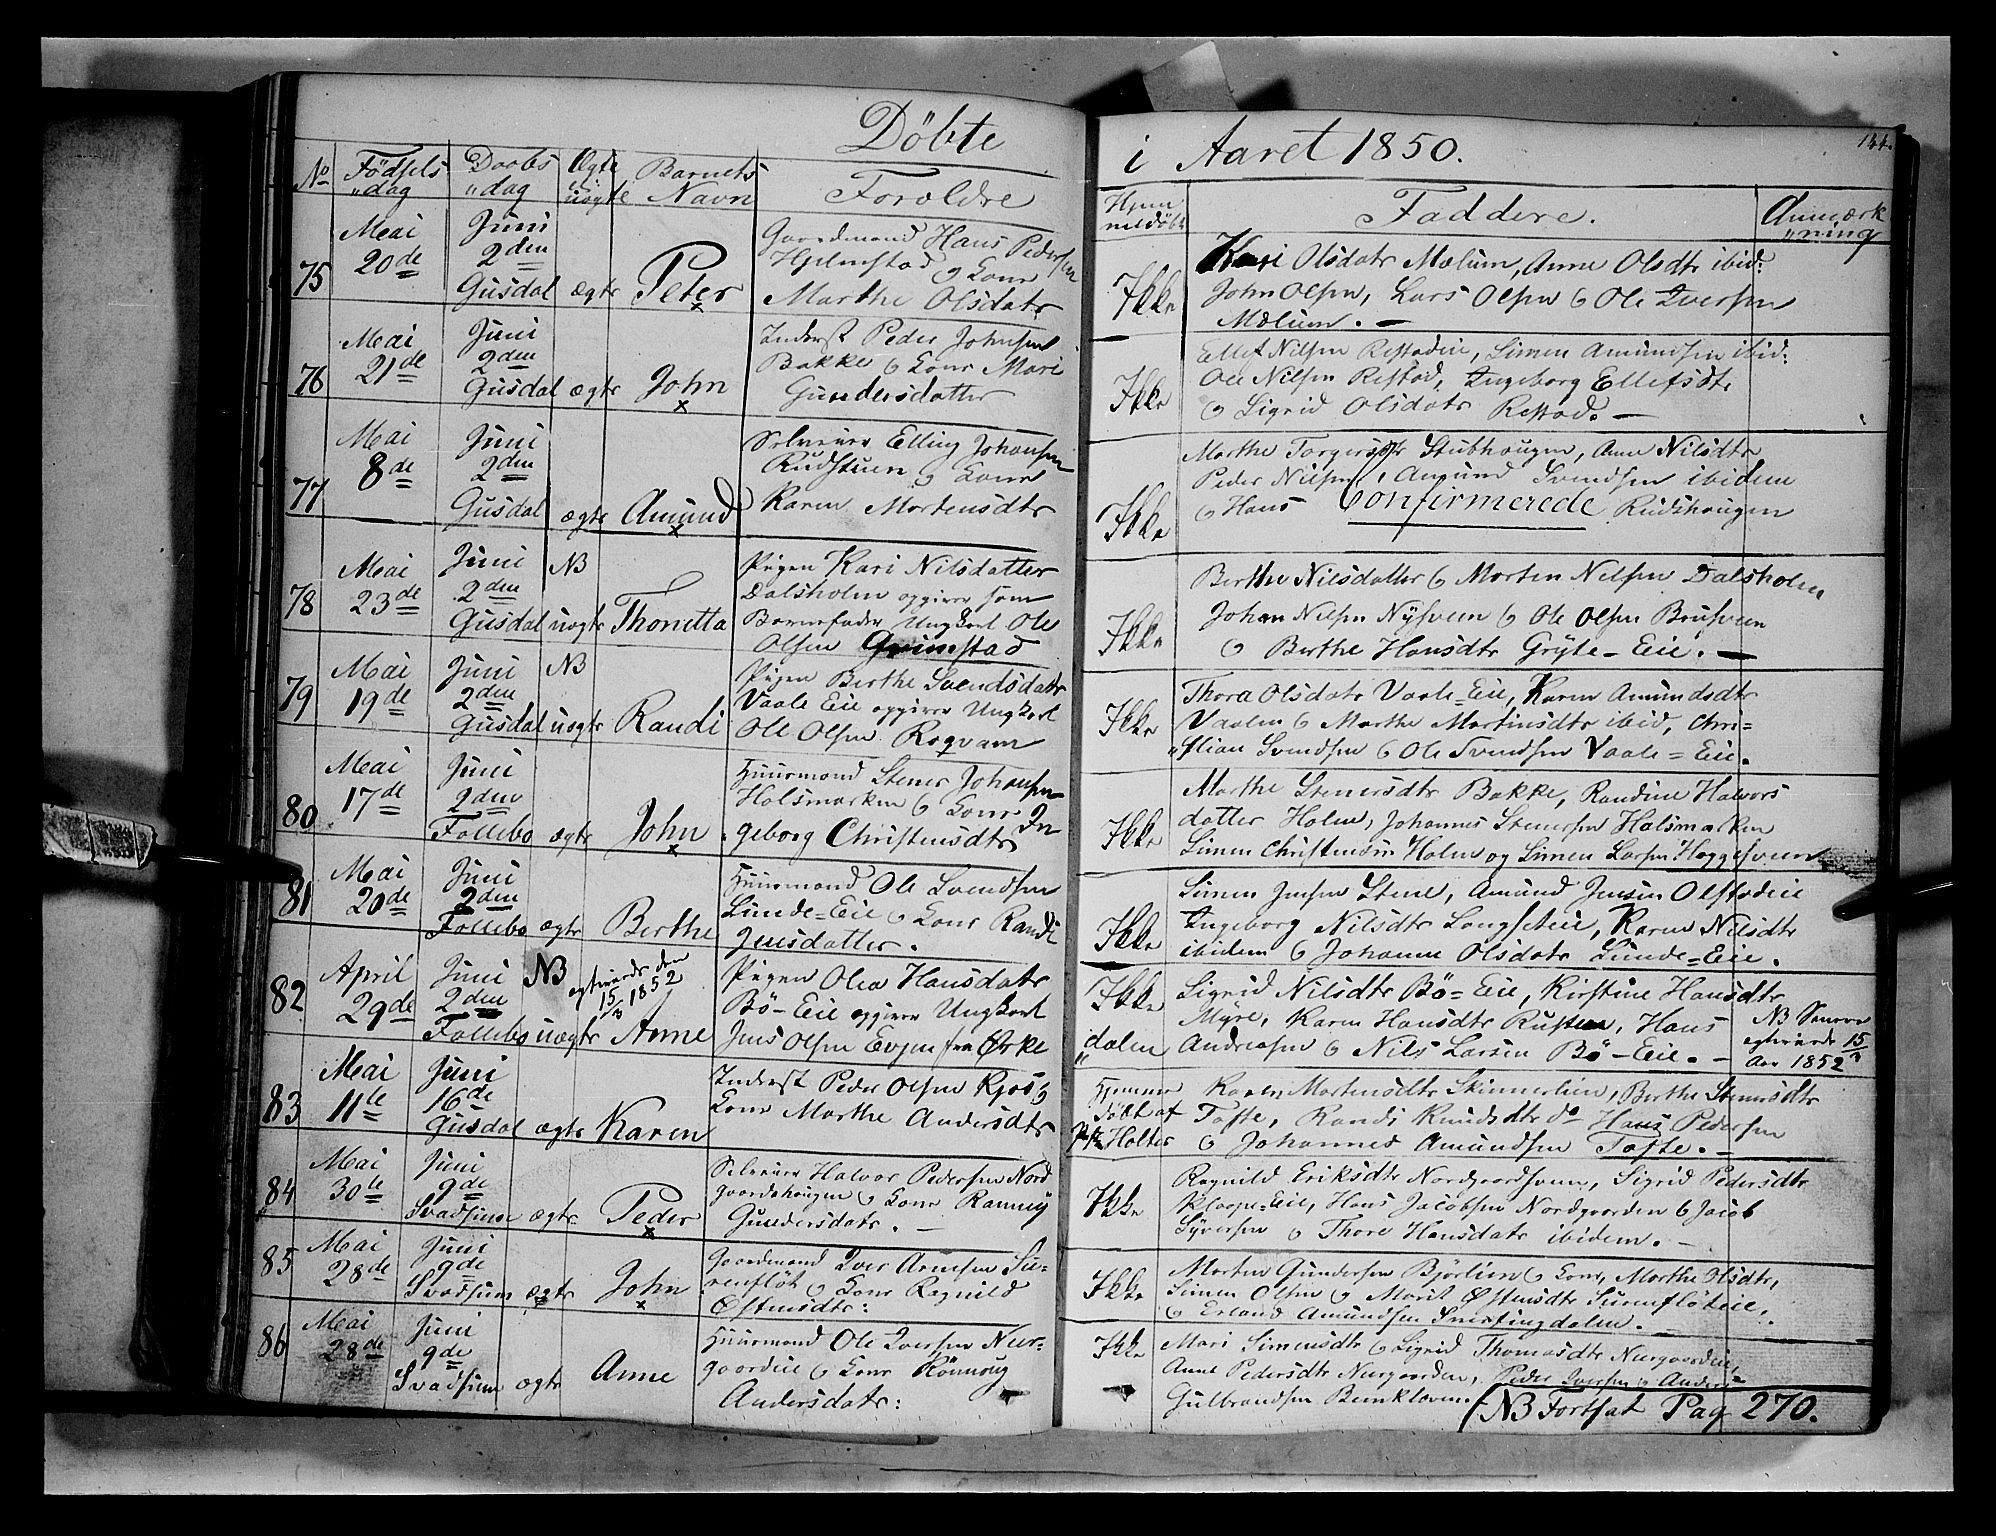 Döbte
i Aaret 1850.
144.
No Födsels Daabs Ægte Barnets
"dag "dag uægte Navn Forældre
Hjem
medöbt Faddere. Anmærk
"ning
75 Mai 20de Juni 2den Gusdal ægte Peter
Gaardmand Hans Pedersen
Hjelmstad & Kone
Marthe Olsdatr
Ikke Kari Olsdatr Mælum, Anne Olsdtr ibid:
John Olsen, Lars Olsen & Ole Iversen
Mælum. –
76 Mai 21de Juni 2den Gusdal ægte John
Inderst Peder Johnsen
Bakke & Kone Mari
Gundersdatter
Ikke Ellef Nilsen Restadeie, Simen Amundsen ibid:
Ole Nilsen Restad, Ingeborg Ellefsdtr
& Sigrid Olsdatr Restad. –
77 Mai 8de Juni 2den Gusdal ægte Amund
Selveier Elling Johansen
Rudstuen & Kone
Karen Mortensdtr
Ikke Marthe Torgersdtr Stubhaugen, Anne Nilsdtr
Peder Nilsen, Amund Svendsen ibidem
& Hans Confirmerede Rudshaugen
78 Mai 23de Juni 2den Gusdal NB uægte Thonetta
Pigen Kari Nilsdatter
Dalsholen opgiver som
Barnefader Ungkarl Ole
Olsen Grimstad
Ikke Berthe Nilsdatter & Morten Nilsen Dalsholen
Johan Nilsen Nysveen & Ole Olsen Brusveen
& Berthe Hansdtr Gryte-Eie. –
79 Mai 19de Juni 2den Gusdal NB uægte Randi
Pigen Berthe Svendsdatr
Vaale Eie opgiver Ungkarl
Ole Olsen Roqvam
Ikke Thora Olsdatr Vaale-Eie, Karen Amundsdtr
Vaalen & Marthe Martinsdtr ibid, Chri=
"stian Svendsen & Ole Svendsen Vaale=Eie.
80 Mai 17de Juni 2den Follebo ægte John
Huusmand Stener Johansen
Holsmarken & Kone In
geborg Christensdtr
Ikke Marthe Stenersdtr Bakke, Randine Halvors
datter Holen, Johannes Stenersen Holsmarken
Simen Christensen Holen og Simen Larsen Heggesveen
81 Mai 20de Juni 2den Follebo ægte Berthe
Huusmand Ole Svendsen
Lunde=Eie & Kone Randi
Jensdatter.
Ikke Simen Jensen Stene, Amund Jensen Olstadeie
Ingeborg Nilsdtr Langseteie, Karen Nilsdtr
ibidem & Johanne Olsdatr Lunde=Eie.
82 April 29de Juni 2den Follebo NB uægte Anne
egtviede den 15/3 1852
Pigen Olea Hansdatr
Bö-Eie opgiver Ungkarl
Jens Olsen Evjen fra Örke
"dalen
Ikke Sigrid Nilsdtr Bö=Eie, Kirstine Hansdtr
Myre, Karen Hansdtr Rusten, Hans
Andreasen & Nils Larsen Bö-Eie. –
NB
egtviede 15/3
Aar 1852
83 Mai 11te Juni 16de Gusdal ægte Karen
Inderst Peder Olsen Kjos &
Kone Marthe Andersdtr
Hjemme
döbt af
Holter
Karen Mortensdtr Skinnerlien, Berthe Stenersdtr
Tofte, Randi Knudsdtr do Hans Pedersen
& Johannes Amundsen Tofte. –
84 Mai 30te Juni 9de Svadsum ægte Peder
Selveier Halvor Pedersen Nord
gaardshaugen & Kone Rannug
Gundersdatr. –
Ikke Ragnild Eriksdtr Nordgaardsveen, Sigrid Pedersdtr
Kloppe=Eie, Hans Jacobsen Nordgaarden & Jacob
Syversen & Thore Hansdatr ibidem. –
85 Mai 28de Juni 9de Svadsum ægte John
Gaardmand Iver Arnesen Su=
renflöt & Kone Ragnild
Östensdtr:
Ikke Morten Gundersen Björlien & Kone, Marthe Olsdtr,
Simen Olsen & Marit Östensdtr Surenflöteie.
& Erland Amundsen Snertingdalen. –
86 Mai 28de Juni 9de Svadsum ægte Anne
Huusmand Ole Iversen Nur=
gaardeie & Kone Rönnug
Andersdatr:
Ikke Mari Simensdtr & Sigrid Thomasdtr Nurgaardeie,
Anne Pedersdtr Nurgaarden, Peder Iversen & Anders
Gulbrandsen Benklöven.
NB Fortsat Pag 270.